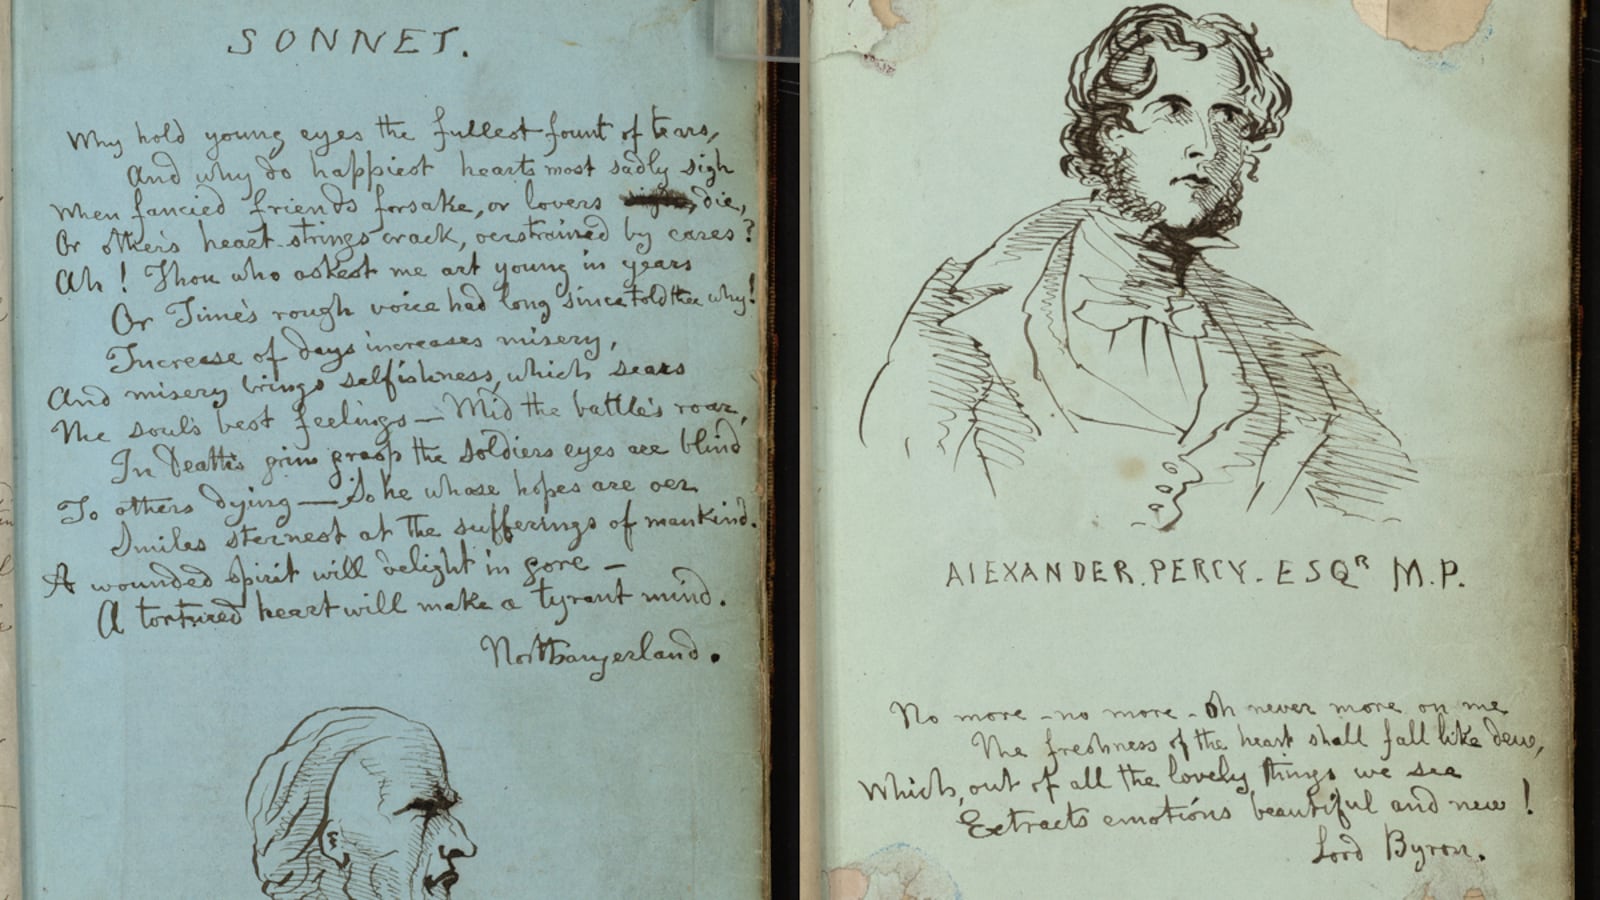 SONNET.
Why hold young eyes the fullest fount of tears,
And why do happiest hearts most sadly sigh
When fancied friends forsake, or lovers die,
Or other's heart-strings crack, oerstrained by cares?
Ah! Thou who askest me art young in years
Or Time's rough voice had long since told thee why!
Increase of days increases misery,
And misery brings selfishness, which sears
The soul's best feelings — Mid the battle's roar,
In Death's grim grasp the soldiers eyes are blind
To others dying — So he whose hopes are oer
Smiles sternest at the sufferings of mankind.
A wounded spirit will delight in gore —
A tortured heart will make a tyrant mind.
Northangerland.
AlEXANDER. PERCY. ESQR M.P.
No more - no more - Oh never more on me
The freshness of the heart shall fall like dew,
Which, out of all the lovely things we see
Extracts emotions beautiful and new!
Lord Byron.